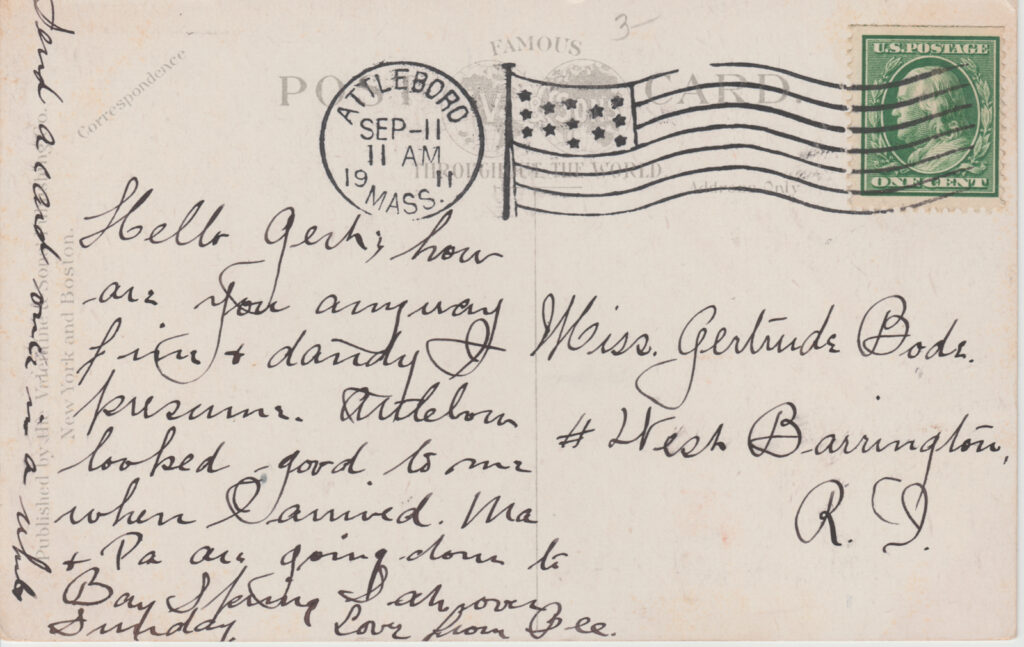 3-
FAMOUS
POST CARD.
THROUGHOUT THE WORLD
Correspondence
Address Only
ATTLEBORO
SEP-11
11 AM
19 11
MASS.
U.S. POSTAGE
ONE CENT
Hello Gert; how
are you anyway
fine & dandy I
presume. Attleboro
looked good to me
when I arrived. Ma
& Pa are going down to
Bay Spring Sat. over
Sunday. Love from Bee.
Send a card once in a while
Miss. Gertrude Bode.
# West Barrington,
R. I.
Published by the Valentine & Sons
New York and Boston.